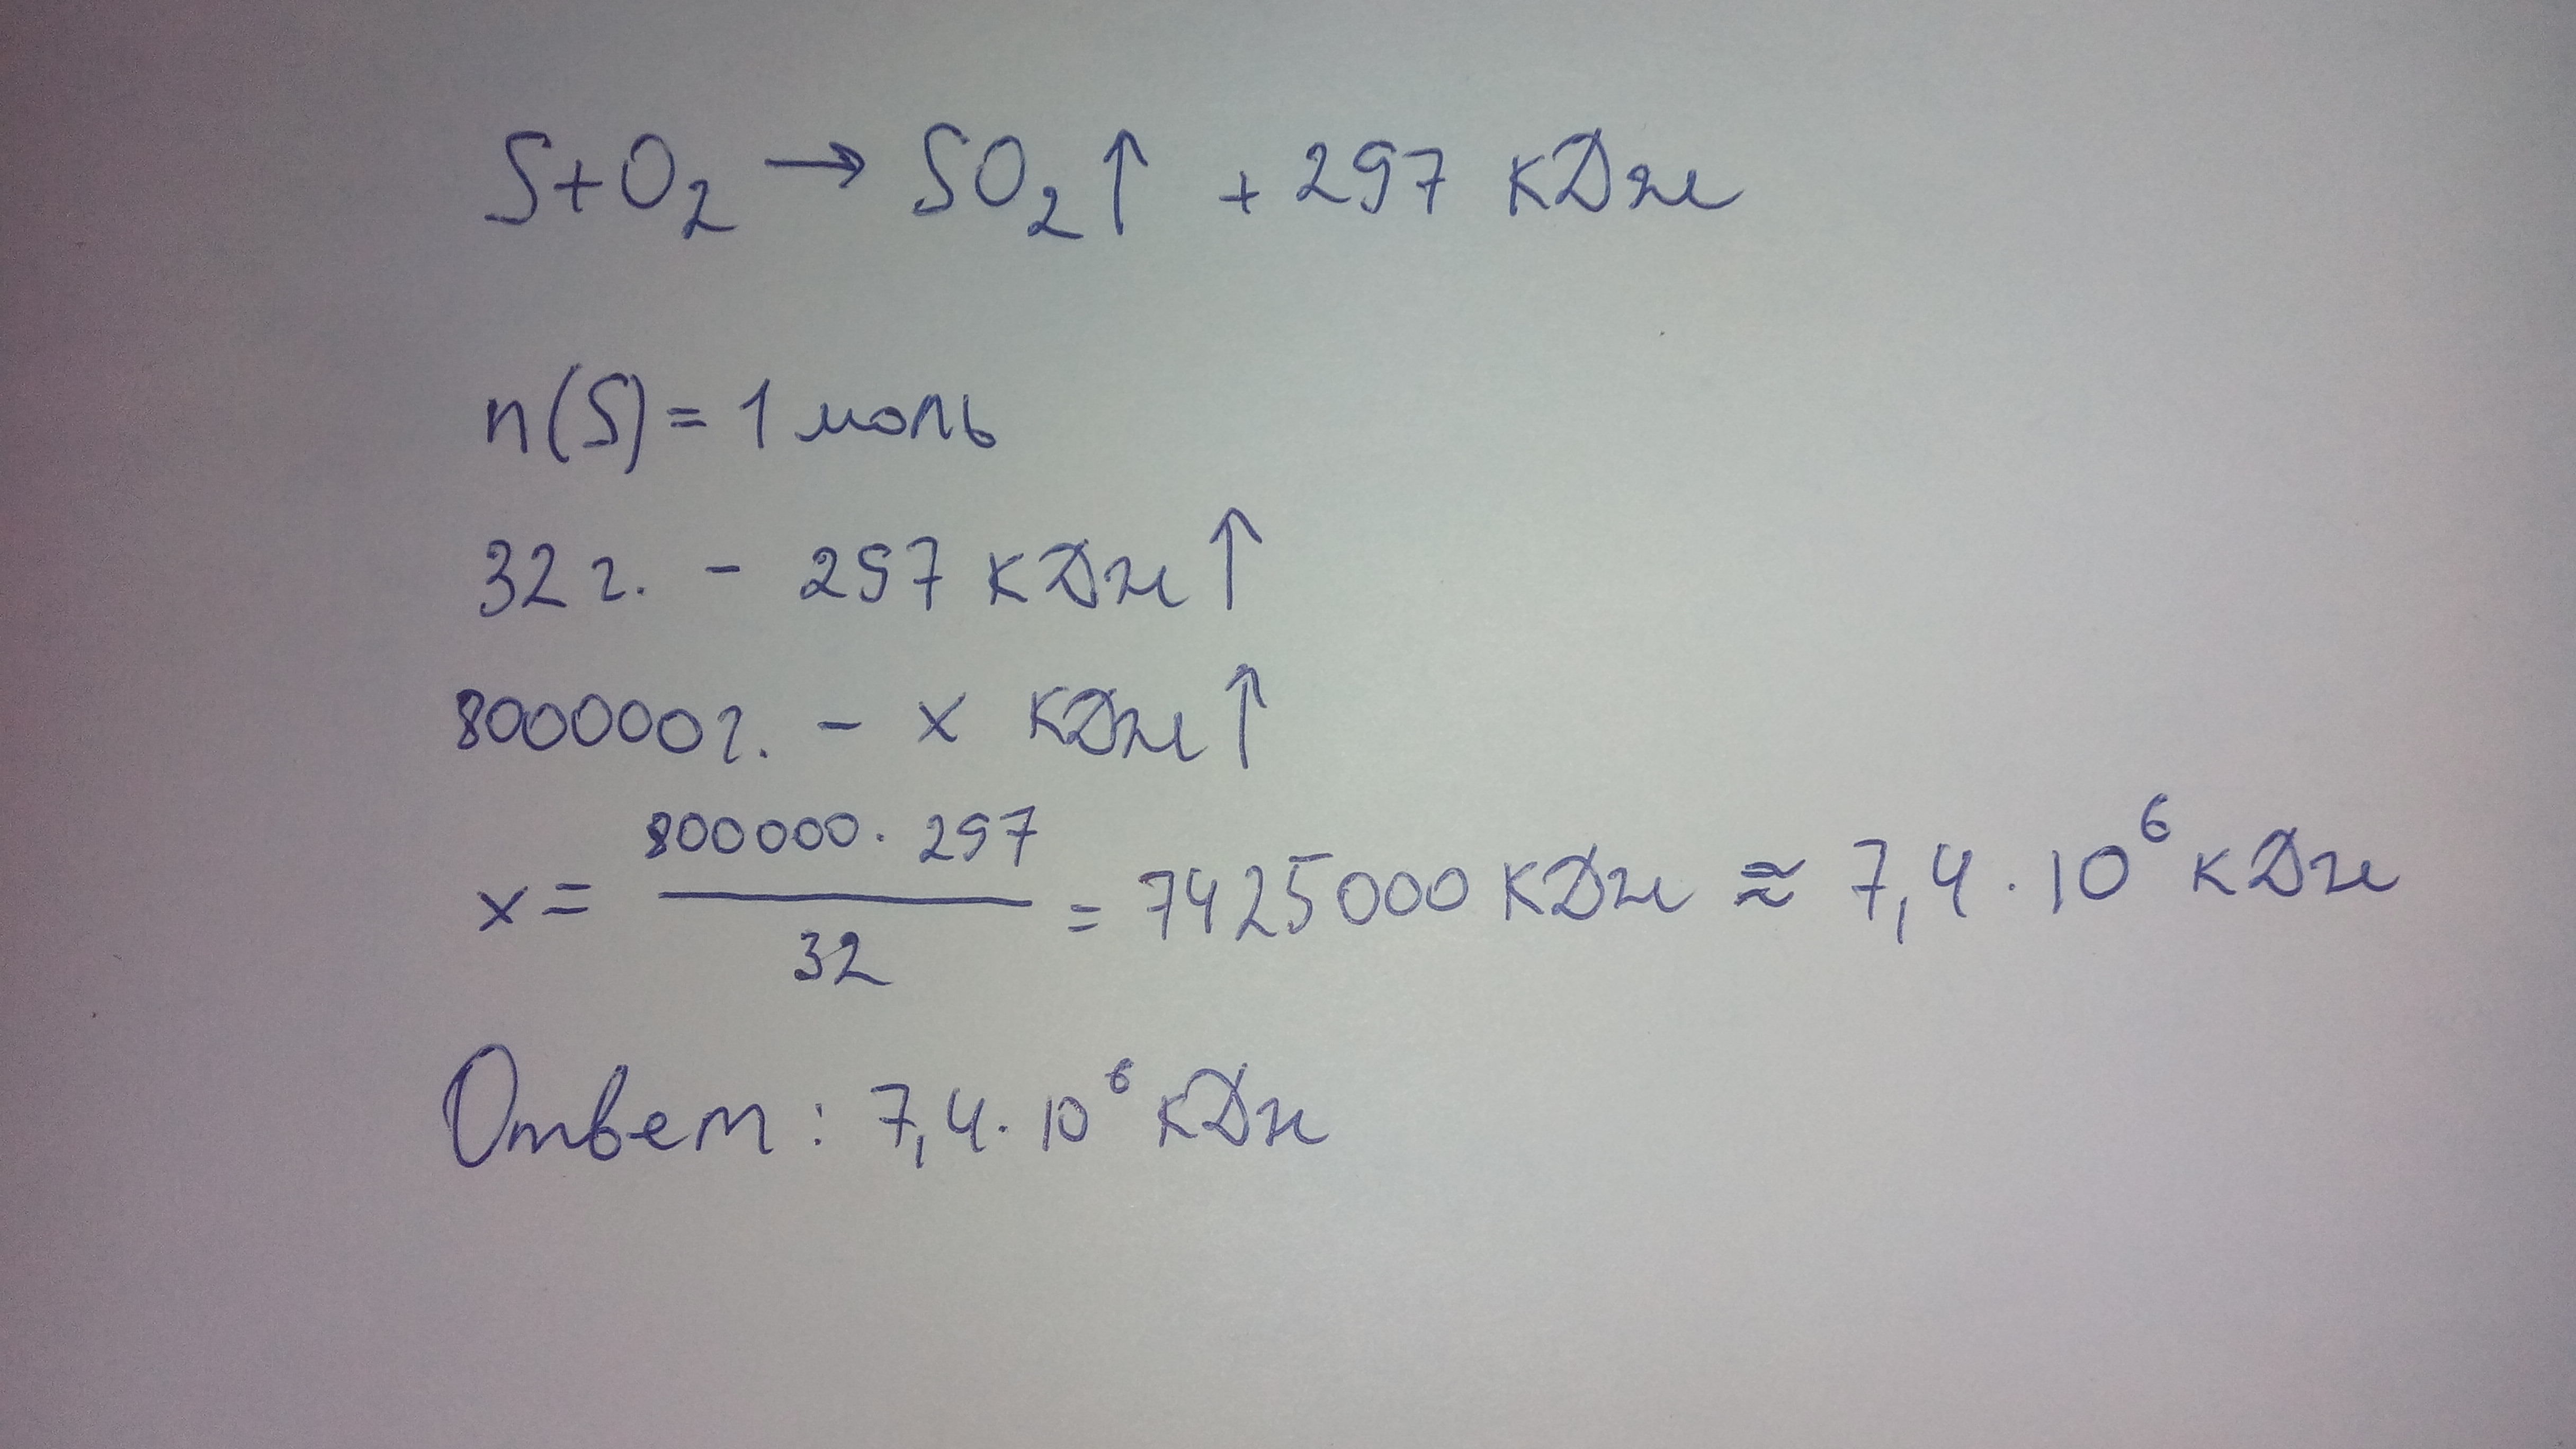 S+O₂ → SO₂↑ + 297 кДж
n(S) = 1 моль
32 г. - 297 кДж↑
800000г. - x кДж↑
x = 800000 · 297 / 32 = 7425000 кДж ≈ 7,4 · 10⁶ кДж
Ответ: 7,4 · 10⁶ кДж